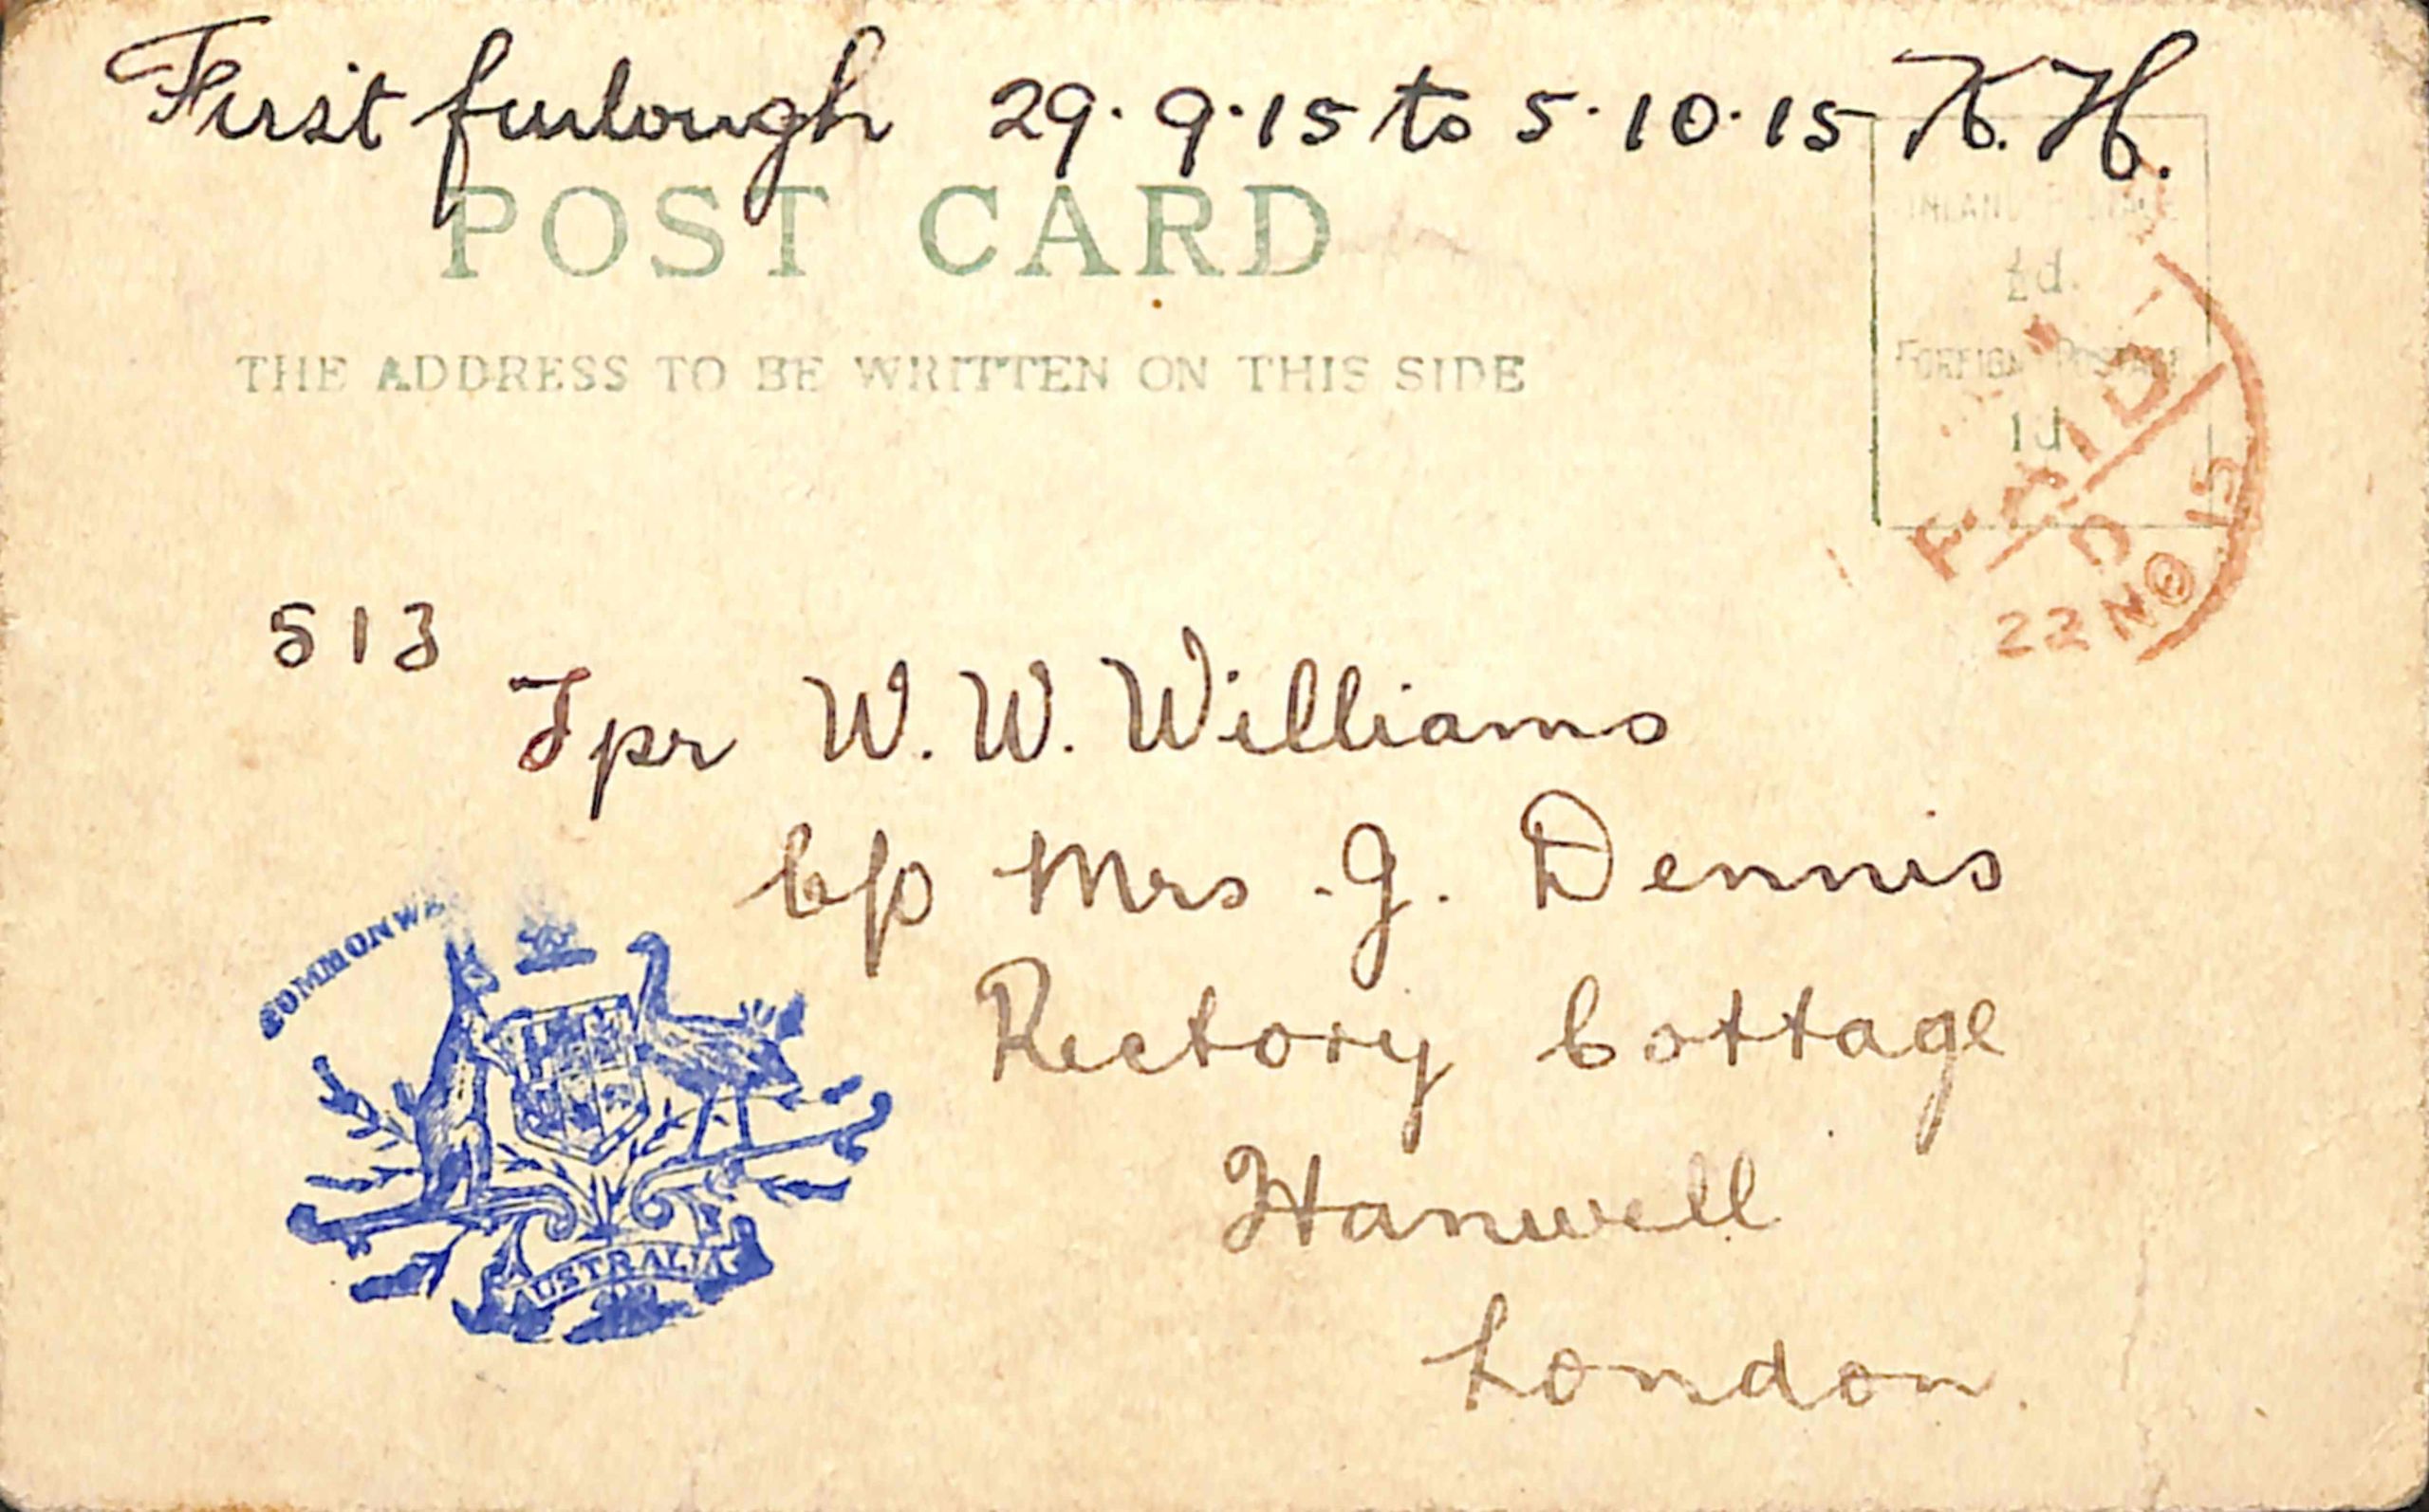 First furlough 29.9.15 to 5.10.15 K.H.
POST CARD
THE ADDRESS TO BE WRITTEN ON THIS SIDE
INLAND POSTAGE
½d.
FOREIGN POSTAGE
1d
PAID
D
22 NO 15
513
Tpr W. W. Williams
C/o Mrs. J. Dennis
Rectory Cottage
Hanwell
London.
COMMONWE
AUSTRALIA